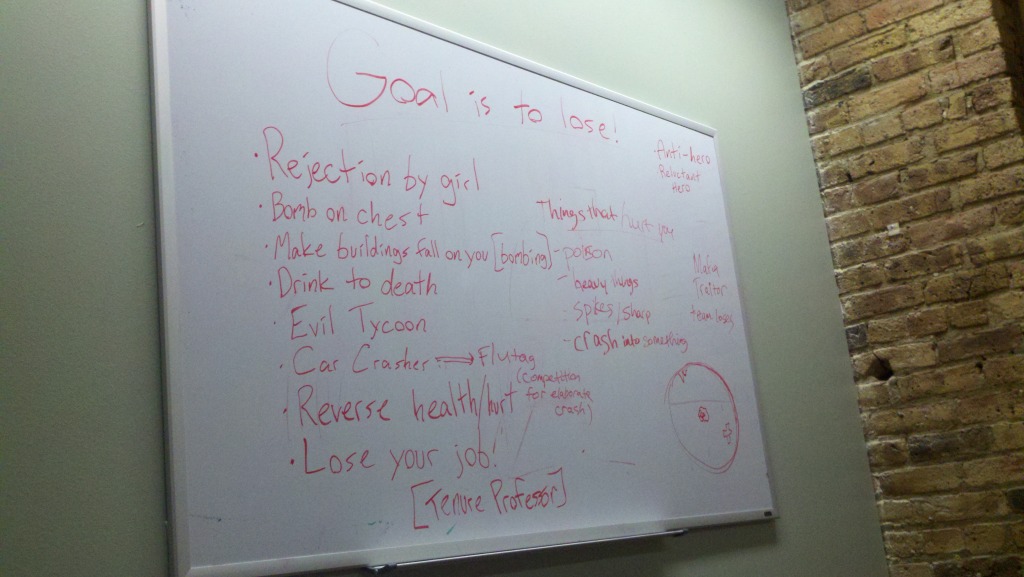 Goal is to lose!
· Rejection by girl
· Bomb on chest
· Make buildings fall on you [bombing]
· Drink to death
· Evil Tycoon
· Car Crasher ⟹ Flutag
(Competition
for elaborate
crash)
· Reverse health/hurt
· Lose your job!
[Tenure Professor]
Things that hurt you
- poison
- heavy things
- spikes/sharp
- crash into something
Anti-hero
Reluctant
Hero
Mafia
Traitor
team loses